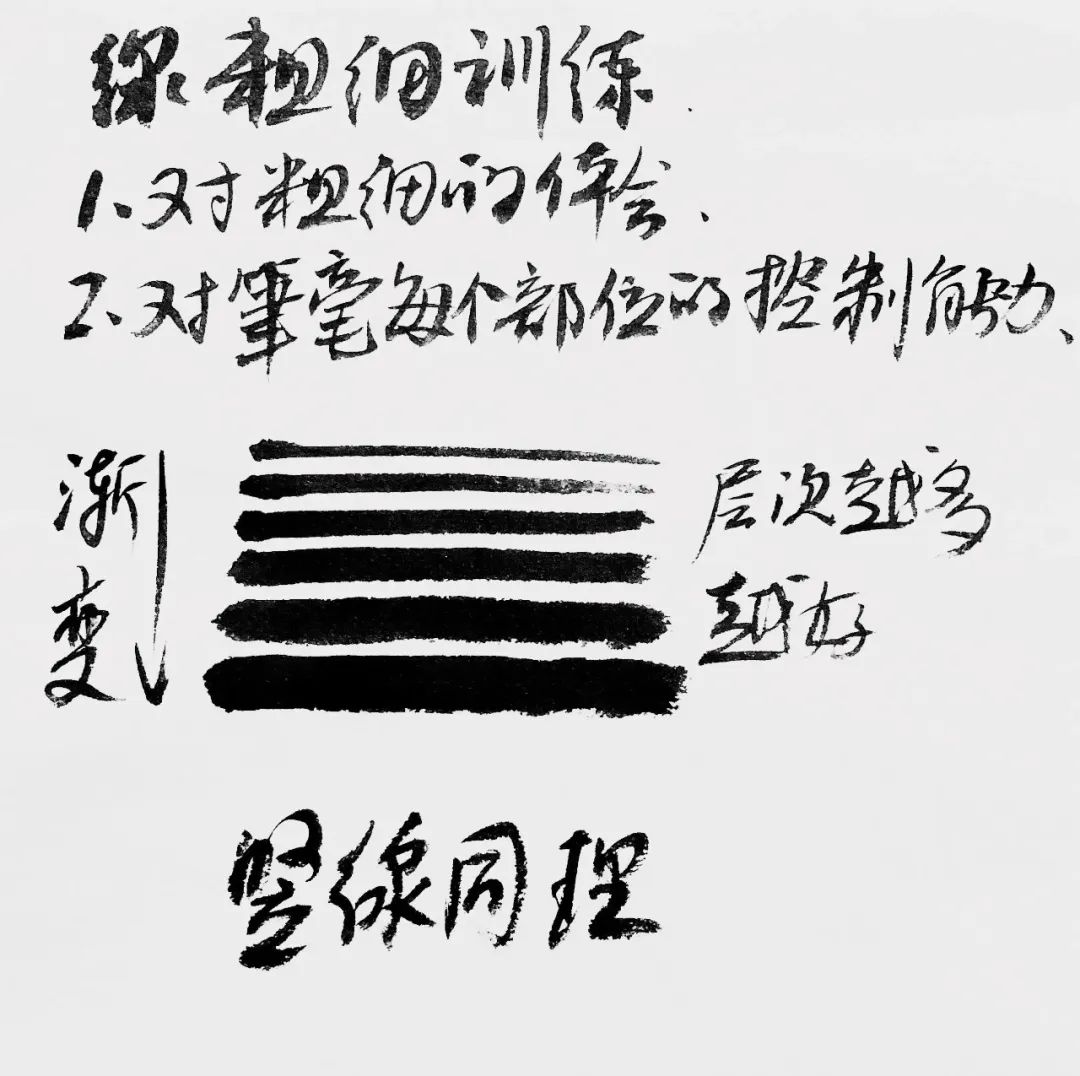 線粗细训练.
1、对粗细的体会、
2、对筆毫每个部位的控制能力、
渐变
层次越多
越好
竖線同理